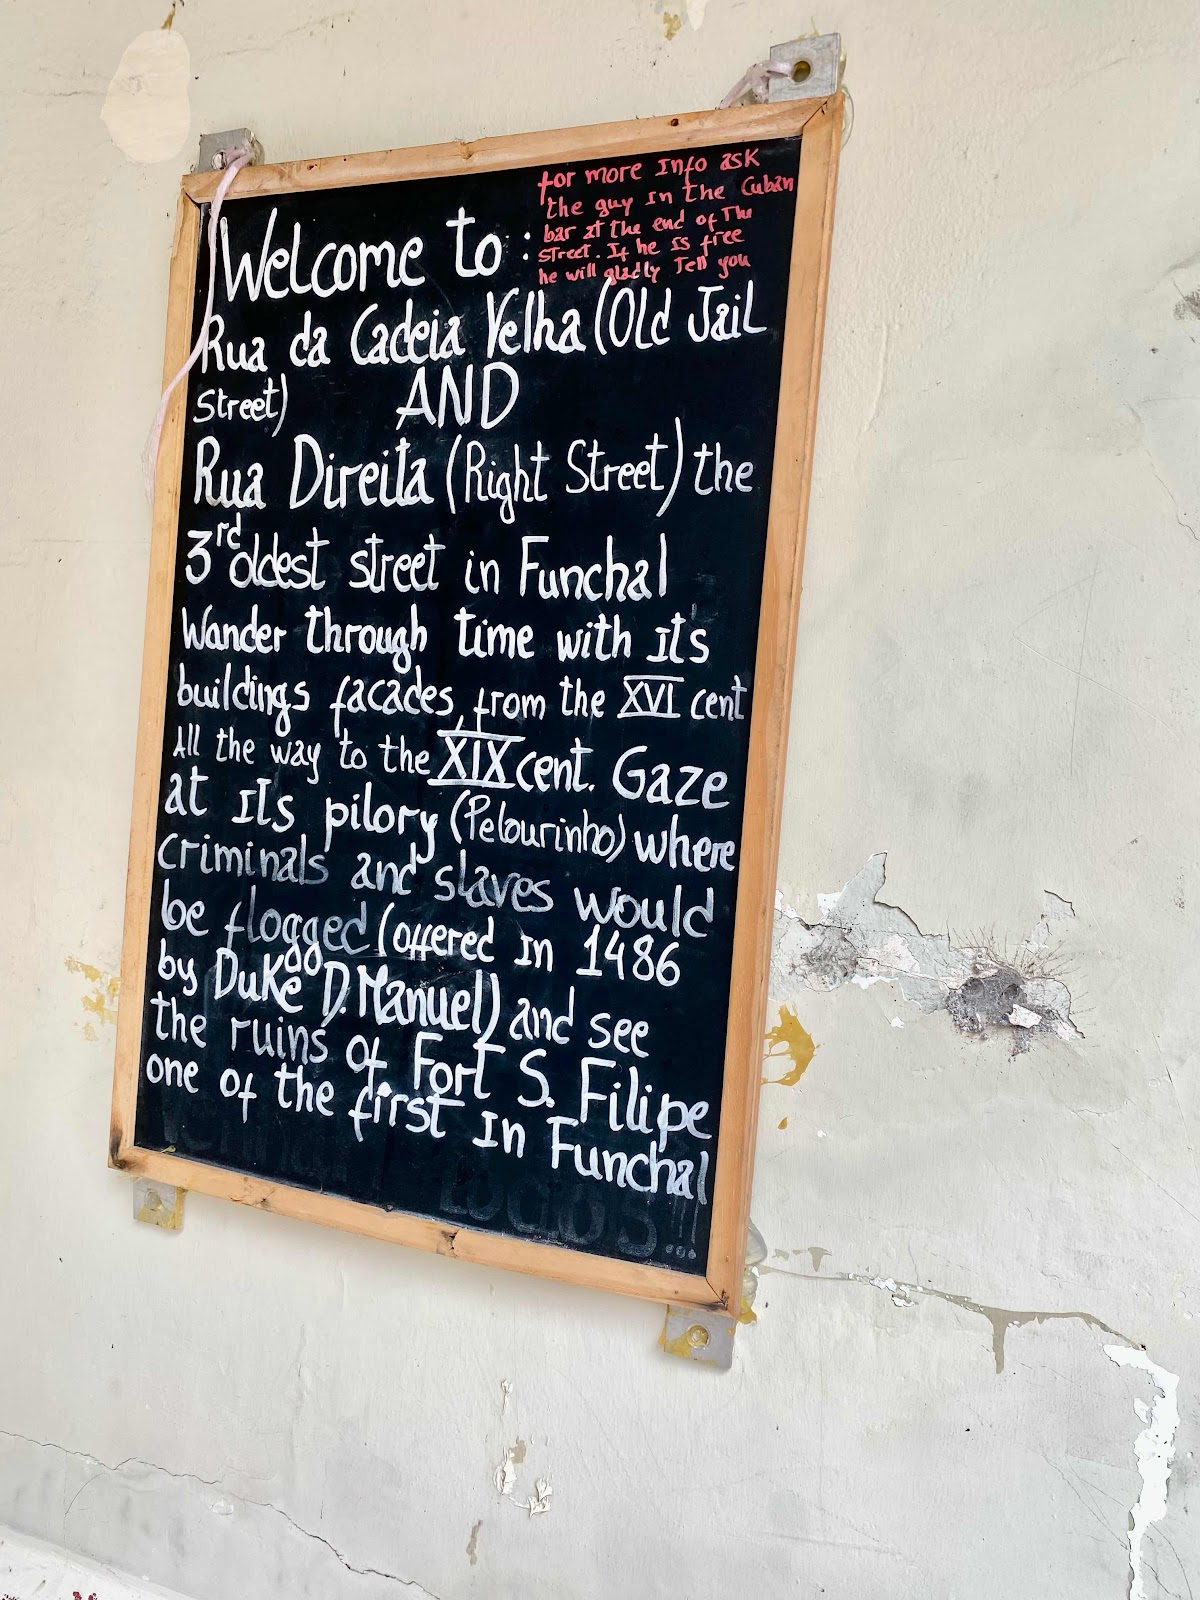 for more Info ask
the guy In the Cuban
bar at the end of The
street. If he Is free
he will gladly Tell you
Welcome to :
Rua da Cadeia Velha (Old Jail
Street) AND
Rua Direita (Right Street) the
3rd oldest street in Funchal
Wander through time with Its
buildings facades, from the XVI cent
All the way to the XIX cent. Gaze
at Its pilory (Pelourinho) where
criminals and slaves would
be flogged (offered In 1486
by Duke D. Manuel) and see
the ruins of Fort S. Filipe
one of the first In Funchal